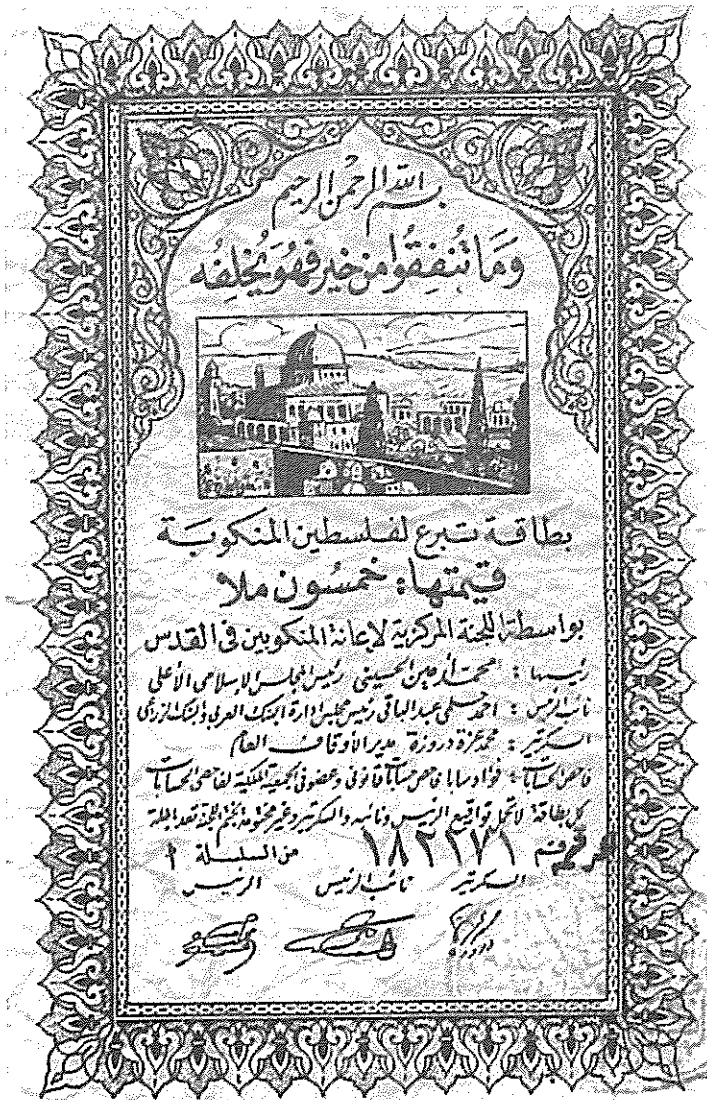 بسم الله الرحمن الرحيم
وَمَا تُنْفِقُوا مِنْ خَيْرٍ فَهُوَ يُخْلِفُه
بطاقة تبرع لفلسطين المنكوبة
قيمتها: خمسون ملا
بواسطة اللجنة المركزية لاعانة المنكوبين فى القدس
رئيسها : محمد أمين الحسيني رئيس المجلس الاسلامي الأعلى
نائب الرئيس : احمد حلمي عبد الباقي رئيس مجلس ادارة البنك العربي والبنك الزراعي
السكرتير : محمد عزة دروزة مدير الأوقاف العام
فاحص الحسابات : فؤاد سابا فاحص حسابات قانوني وعضو في الجمعية الملكية لفاحصي الحسابات
كل بطاقة لا تحمل تواقيع الرئيس ونائبه والسكرتير وغير مختومة بختم اللجنة تعد باطلة
رقم ١٨٢٢٧١ من السلسلة ٩
السكرتير نائب الرئيس الرئيس